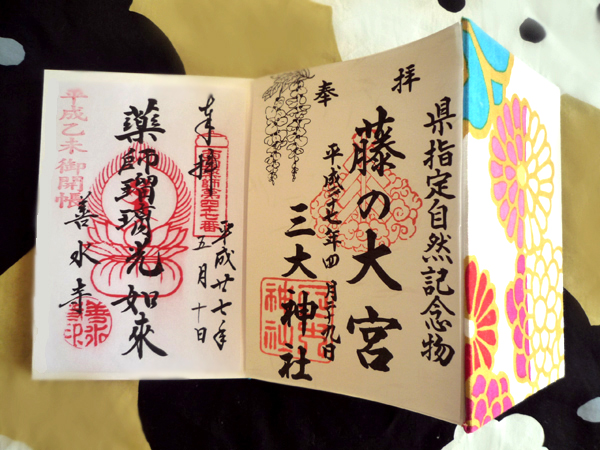 県指定自然記念物
奉拝
藤の大宮
平成廿七年四月廿九日
三大神社
奉拝
平成廿七年
五月十日
薬師瑠璃光如來
善水寺
平成乙未御開帳